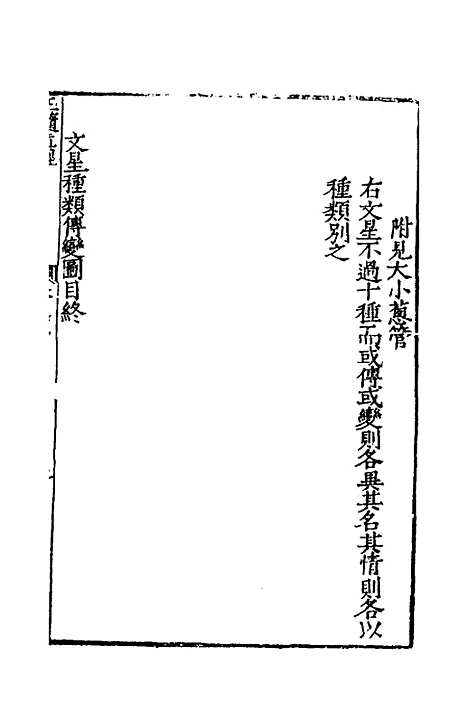 附見大小葱管
右文星不過十種而或傳或變則各異其名其情則各以
種類別之
文星種類傳變圖目終